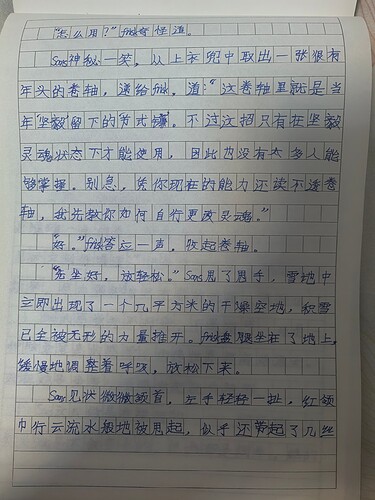 “怎么用？”frisk奇怪道。
Sans神秘一笑，从上衣兜中取出一张很有
年头的卷轴，递给frisk，道：“这卷轴里就是当
年‘坚毅’留下的‘方式
不过这招只有在坚毅
灵魂状态下才能使用，因此也没有太多人能
够掌握。别急，凭你现在的能力还读不透卷
轴，我先教你如何自行更改灵魂。”
“好。”frisk答应一声，收起卷轴。
“先坐好，放轻松。”Sans甩了甩手，雪地中
立即出现了一个几平方米的干燥空地，积雪
已全被无形的力量推开。frisk盘腿坐在了地上，
缓慢地调整着呼吸，放松下来。
Sans见状微微颔首，左手轻轻一扯，红领
巾行云流水般地被甩起，似乎还带起了几丝